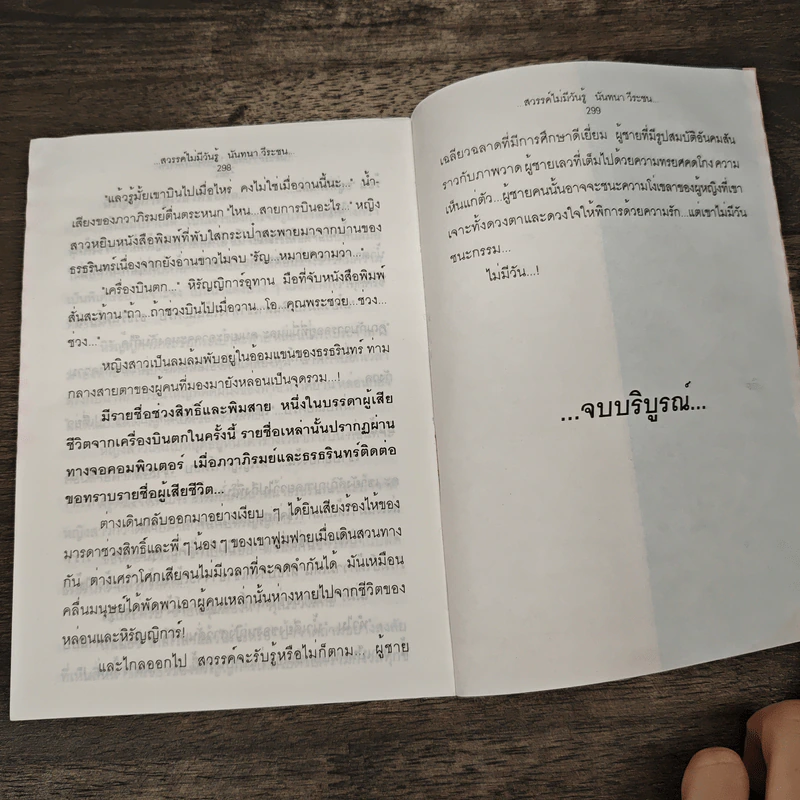 ...สวรรค์ไม่มีวันรู้ นันทนา วีระชน...
298
"แล้วรู้มั้ยเขาบินไปเมื่อไหร่ คงไม่ใช่เมื่อวานนี้นะ..." น้ำ-
เสียงของภวาภิรมย์ตื่นตระหนก "ไหน...สายการบินอะไร..." หญิง
สาวหยิบหนังสือพิมพ์ที่พับใส่กระเป๋าสะพายมาจากบ้านของ
ธรธรินทร์เนื่องจากยังอ่านข่าวไม่จบ "รัญ...หมายความว่า..."
"เครื่องบินตก..." หิรัญญิการ์อุทาน มือที่จับหนังสือพิมพ์
สั่นสะท้าน "ถ้า...ถ้าช่วงบินไปเมื่อวาน...โอ...คุณพระช่วย...ช่วง...
ช่วง..."
หญิงสาวเป็นลมล้มพับอยู่ในอ้อมแขนของธรธรินทร์ ท่าม
กลางสายตาของผู้คนที่มองมายังหล่อนเป็นจุดรวม...!
มีรายชื่อช่วงสิทธิ์และพิมสาย หนึ่งในบรรดาผู้เสีย
ชีวิตจากเครื่องบินตกในครั้งนี้ รายชื่อเหล่านั้นปรากฏผ่าน
ทางจอคอมพิวเตอร์ เมื่อภวาภิรมย์และธรธรินทร์ติดต่อ
ขอทราบรายชื่อผู้เสียชีวิต...
ต่างเดินกลับออกมาอย่างเงียบ ๆ ได้ยินเสียงร้องไห้ของ
มารดาช่วงสิทธิ์และพี่ ๆ น้อง ๆ ของเขาฟูมฟายเมื่อเดินสวนทาง
กัน ต่างเศร้าโศกเสียจนไม่มีเวลาที่จะจดจำกันได้ มันเหมือน
คลื่นมนุษย์ได้พัดพาเอาผู้คนเหล่านั้นห่างหายไปจากชีวิตของ
หล่อนและหิรัญญิการ์!
และไกลออกไป สวรรค์จะรับรู้หรือไม่ก็ตาม... ผู้ชาย
...สวรรค์ไม่มีวันรู้ นันทนา วีระชน...
299
เฉลียวฉลาดที่มีการศึกษาดีเยี่ยม ผู้ชายที่มีรูปสมบัติอันคมสัน
ราวกับภาพวาด ผู้ชายเลวที่เต็มไปด้วยความทรยศคดโกง ความ
เห็นแก่ตัว...ผู้ชายคนนั้นอาจจะชนะความโง่เขลาของผู้หญิงที่เขา
เจาะทั้งดวงตาและดวงใจให้พิการด้วยความรัก...แต่เขาไม่มีวัน
ชนะกรรม...
ไม่มีวัน...!
...จบบริบูรณ์...